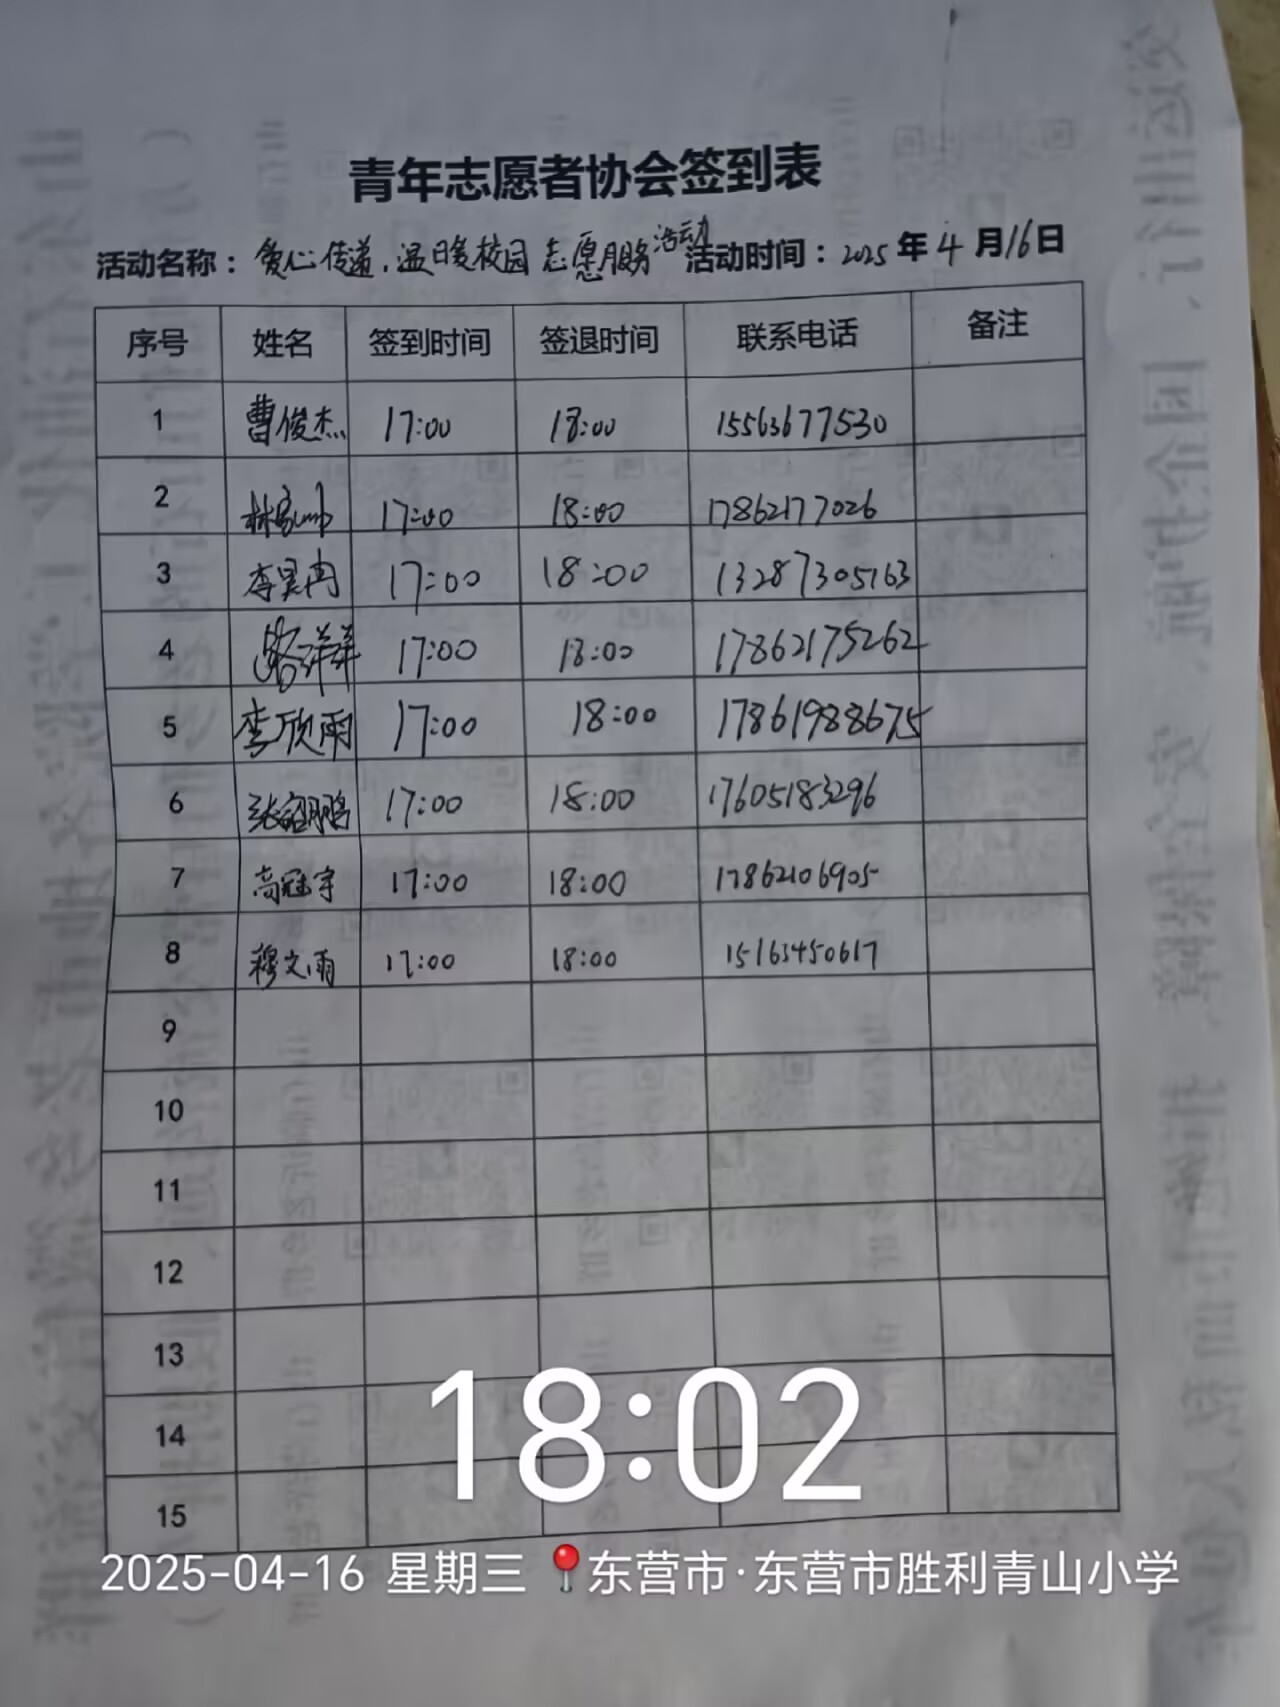 青年志愿者协会签到表
活动名称：爱心传递，温暖校园 志愿服务活动 活动时间：2025 年 4 月 16 日
序号 姓名 签到时间 签退时间 联系电话 备注
1 曹俊杰 17:00 18:00 15563677530
2 17:00 18:00 17862177026
3 李昊冉 17:00 18:00 13287305163
4 路洋洋 17:00 18:00 17862175262
5 李欣雨 17:00 18:00 17861988675
6 17:00 18:00 17605183296
7 高冠宇 17:00 18:00 17862106905
8 穆文雨 17:00 18:00 15163450617
9
10
11
12
13
14
15
18:02
2025-04-16 星期三 东营市·东营市胜利青山小学